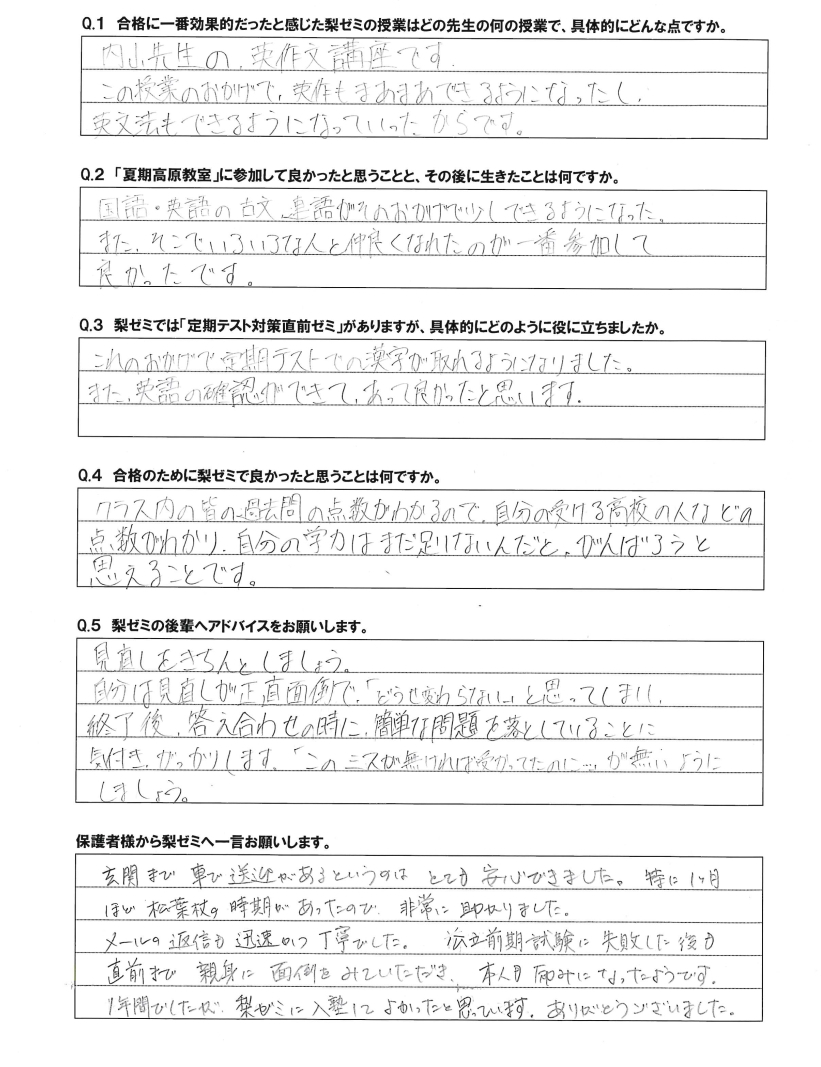 Q.1 合格に一番効果的だったと感じた梨ゼミの授業はどの先生の何の授業で、具体的にどんな点ですか。
内山先生の、英作文講座です。
この授業のおかげで、英作もまあまあできるようになったし、
英文法もできるようになっていったからです。
Q.2 「夏期高原教室」に参加して良かったと思うことと、その後に生きたことは何ですか。
国語・英語の古文、単語がそのおかげで少しできるようになった。
また、そこでいろいろな人と仲良くなれたのが一番参加して
良かったです。
Q.3 梨ゼミでは「定期テスト対策直前ゼミ」がありますが、具体的にどのように役に立ちましたか。
これのおかげで定期テストでの漢字が取れるようになりました。
また、英語の確認ができて、あって良かったと思います。
Q.4 合格のために梨ゼミで良かったと思うことは何ですか。
クラス内の皆の過去問の点数がわかるので、自分の受ける高校の人などの
点数がわかり、自分の学力はまだ足りないんだと、がんばろうと
思えることです。
Q.5 梨ゼミの後輩へアドバイスをお願いします。
見直しをきちんとしましょう。
自分は見直しが正直面倒で、「どうせ変わらない…」と思ってしまい、
終了後、答え合わせの時に、簡単な問題を落としていることに
気付き、がっかりします。「このミスが無ければ受かってたのに…」が無いように
しましょう。
保護者様から梨ゼミへ一言お願いします。
玄関まで車で送迎があるというのはとても安心できました。特に1ヶ月
ほど松葉杖の時期があったので、非常に助かりました。
メールの返信も迅速かつ丁寧でした。公立前期試験に失敗した後も
直前まで親身に面倒をみていただき、本人も励みになったようです。
1年間でしたが、梨ゼミに入塾してよかったと思っています。ありがとうございました。